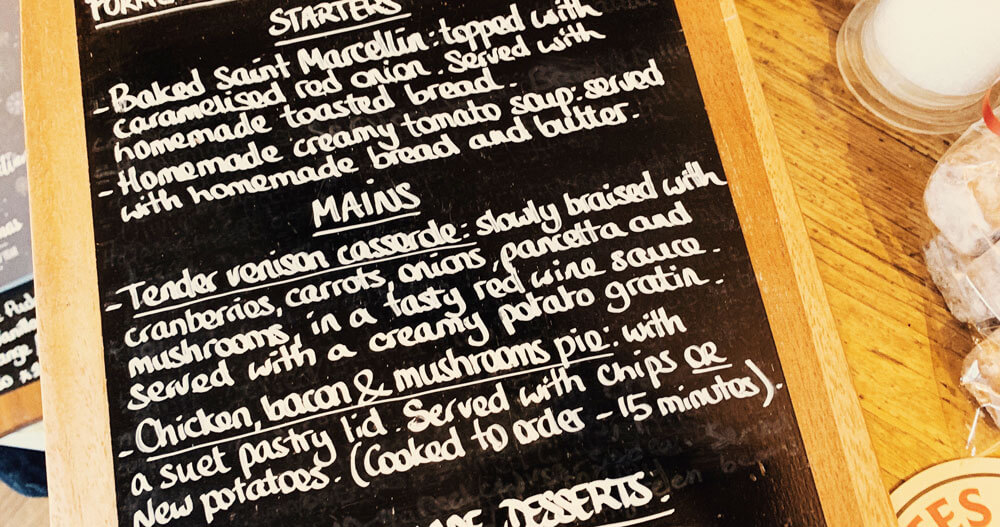 STARTERS
- Baked Saint Marcellin: topped with
caramelised red onion. Served with
homemade toasted bread.
- Homemade creamy tomato soup: served
with homemade bread and butter.
MAINS
- Tender venison casserole: slowly braised with
cranberries, carrots, onions, pancetta and
mushrooms, in a tasty red wine sauce.
served with a creamy potato gratin.
- Chicken, bacon & mushrooms pie: with
a suet pastry lid. Served with chips OR
New potatoes. (Cooked to order - 15 minutes).
DESSERTS.